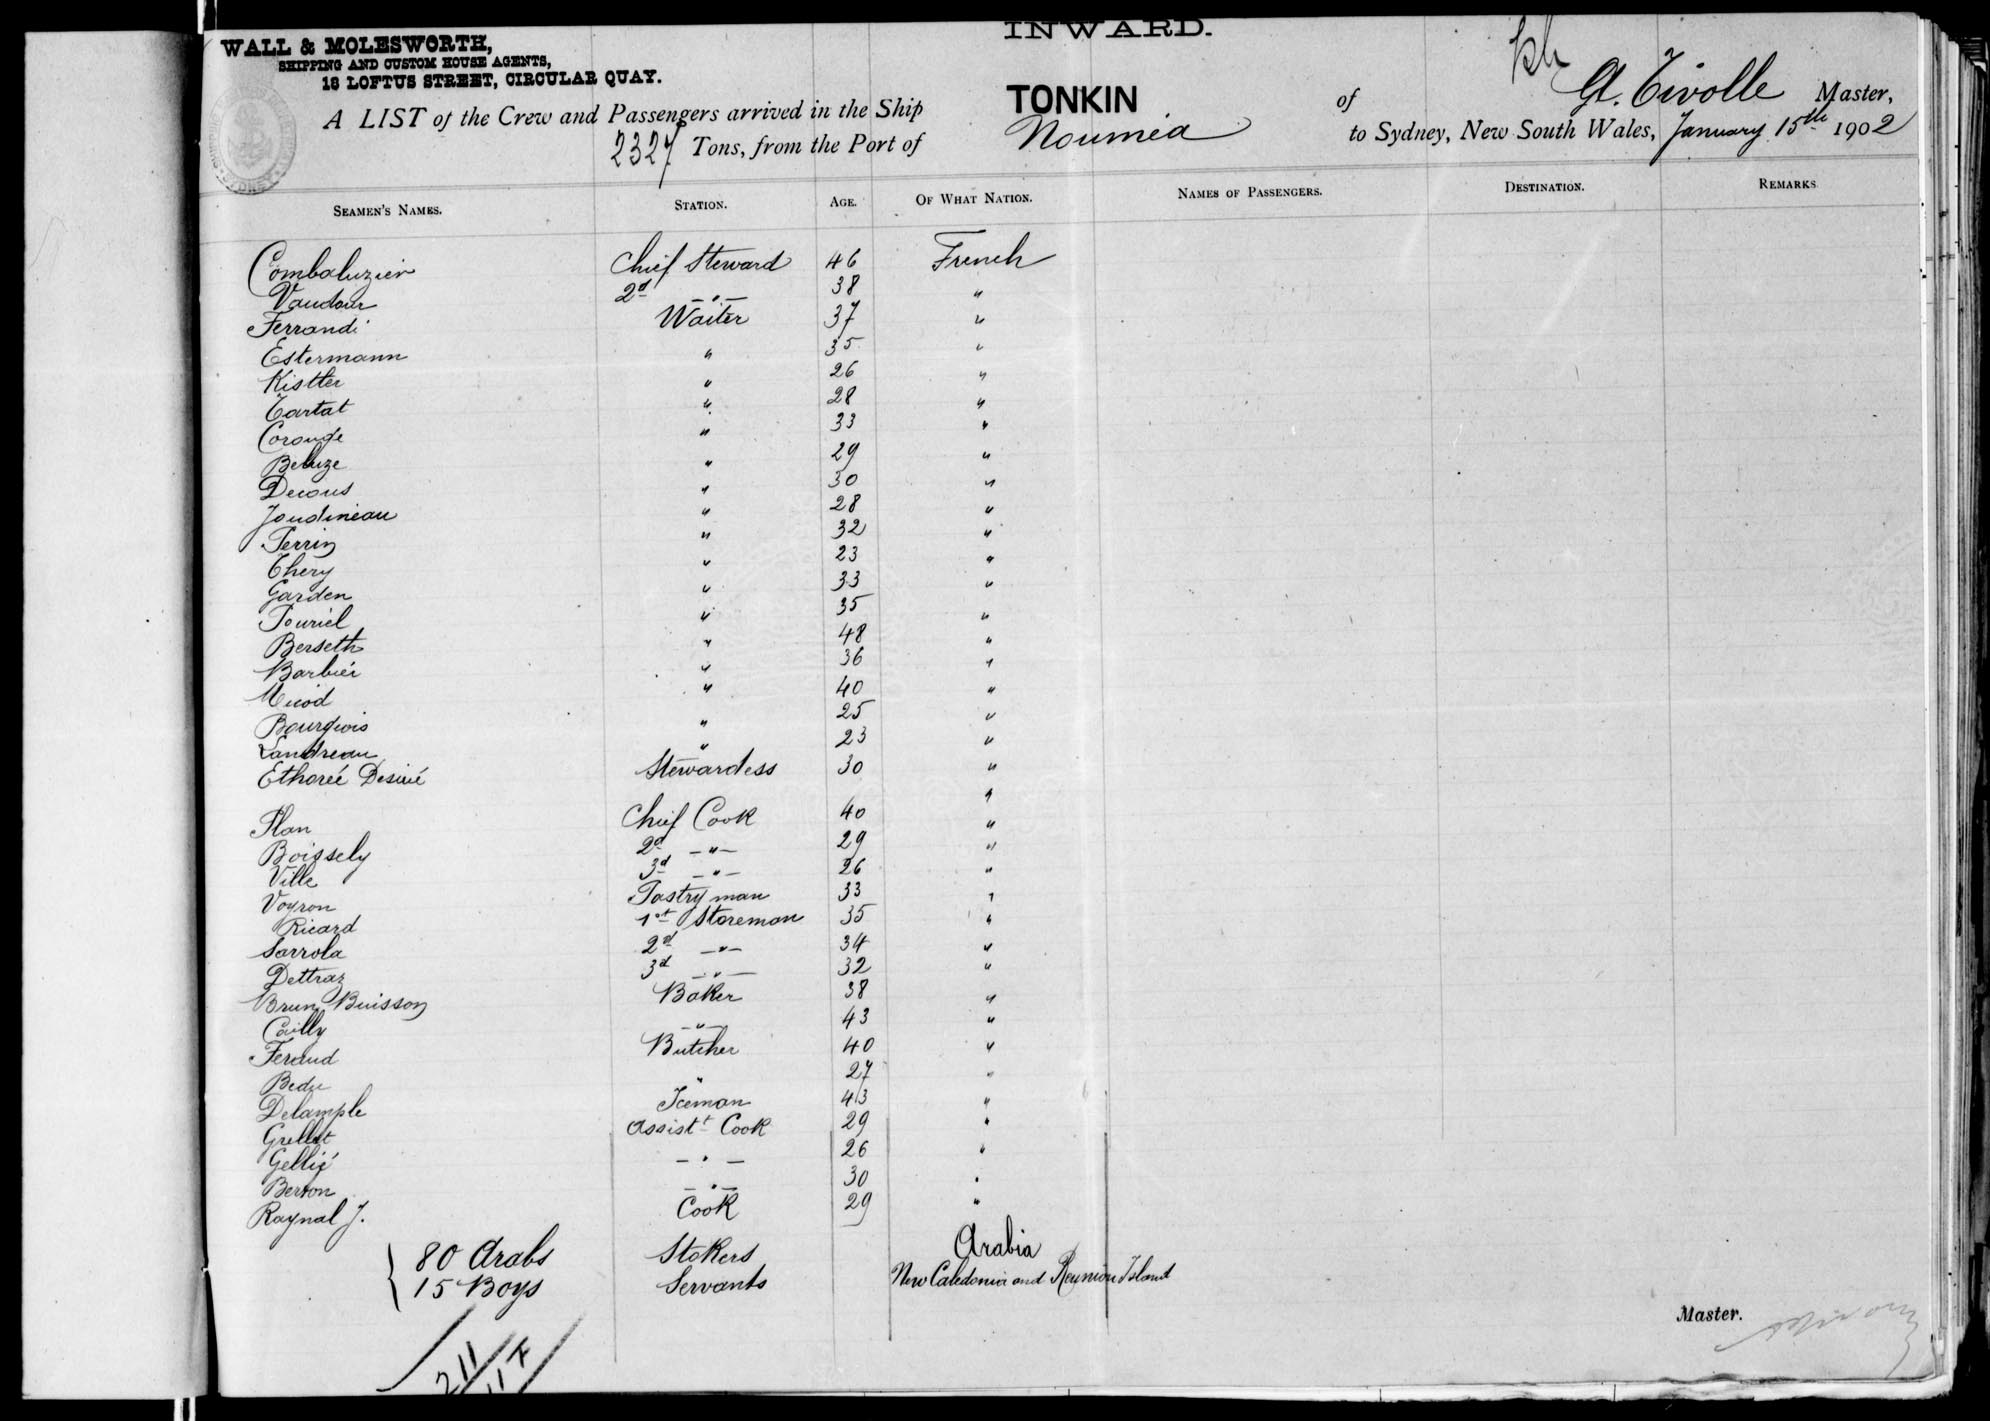 INWARD.
WALL & MOLESWORTH,
SHIPPING AND CUSTOM HOUSE AGENTS,
18 LOFTUS STREET, CIRCULAR QUAY.
A LIST of the Crew and Passengers arrived in the Ship TONKIN of Gl. Tivolle Master,
2327 Tons, from the Port of Nouméa to Sydney, New South Wales, January 15th 1902
SEAMEN'S NAMES. STATION. AGE. OF WHAT NATION. NAMES OF PASSENGERS. DESTINATION. REMARKS
Combaluzier Chief Steward 46 French
Vaudour 2d —"— 38 "
Ferrandi Waiter 37 "
Estermann " 35 "
Kistler " 26 "
Tartat " 28 "
Coronge " 33 "
Beluze " 29 "
Decous " 30 "
Joudineau " 28 "
Perrin " 32 "
Thery " 23 "
Garden " 33 "
Pouriel " 35 "
Berseth " 48 "
Barbier " 36 "
Micod " 40 "
Bourgeois " 25 "
Landreau " 23 "
Ethoreé Desiré Stewardess 30 "
"
Plan Chief Cook 40 "
Boissely 2d —"— 29 "
Ville 3d —"— 26 "
Voyron Pastry man 33 "
Ricard 1st Storeman 35 "
Sarrola 2d —"— 34 "
Dettraz 3d —"— 32 "
Brun Buisson Baker 38 "
Cailly —"— 43 "
Feraud Butcher 40 "
Bedu " 27 "
Delample Iceman 43 "
Grellet Assistt Cook 29 "
Gellié —"— 26 "
Berton —"— 30 "
Raynal J. Cook 29 "
80 Arabs Stokers Arabia
15 Boys Servants New Caledonia and Reunion Island
Master.
211
117